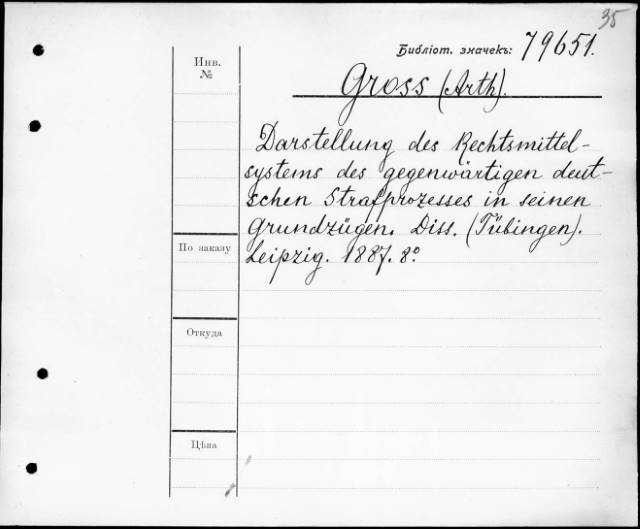 35
Библіот. значекъ: 79651.
Инв.
№
Gross (Arth).
Darstellung des Rechtsmittel-
systems des gegenwärtigen deut-
schen Strafprozesses in seinen
Grundzügen. Diss. (Tübingen).
Leipzig. 1887. 8°
По заказу
Откуда
Цѣна